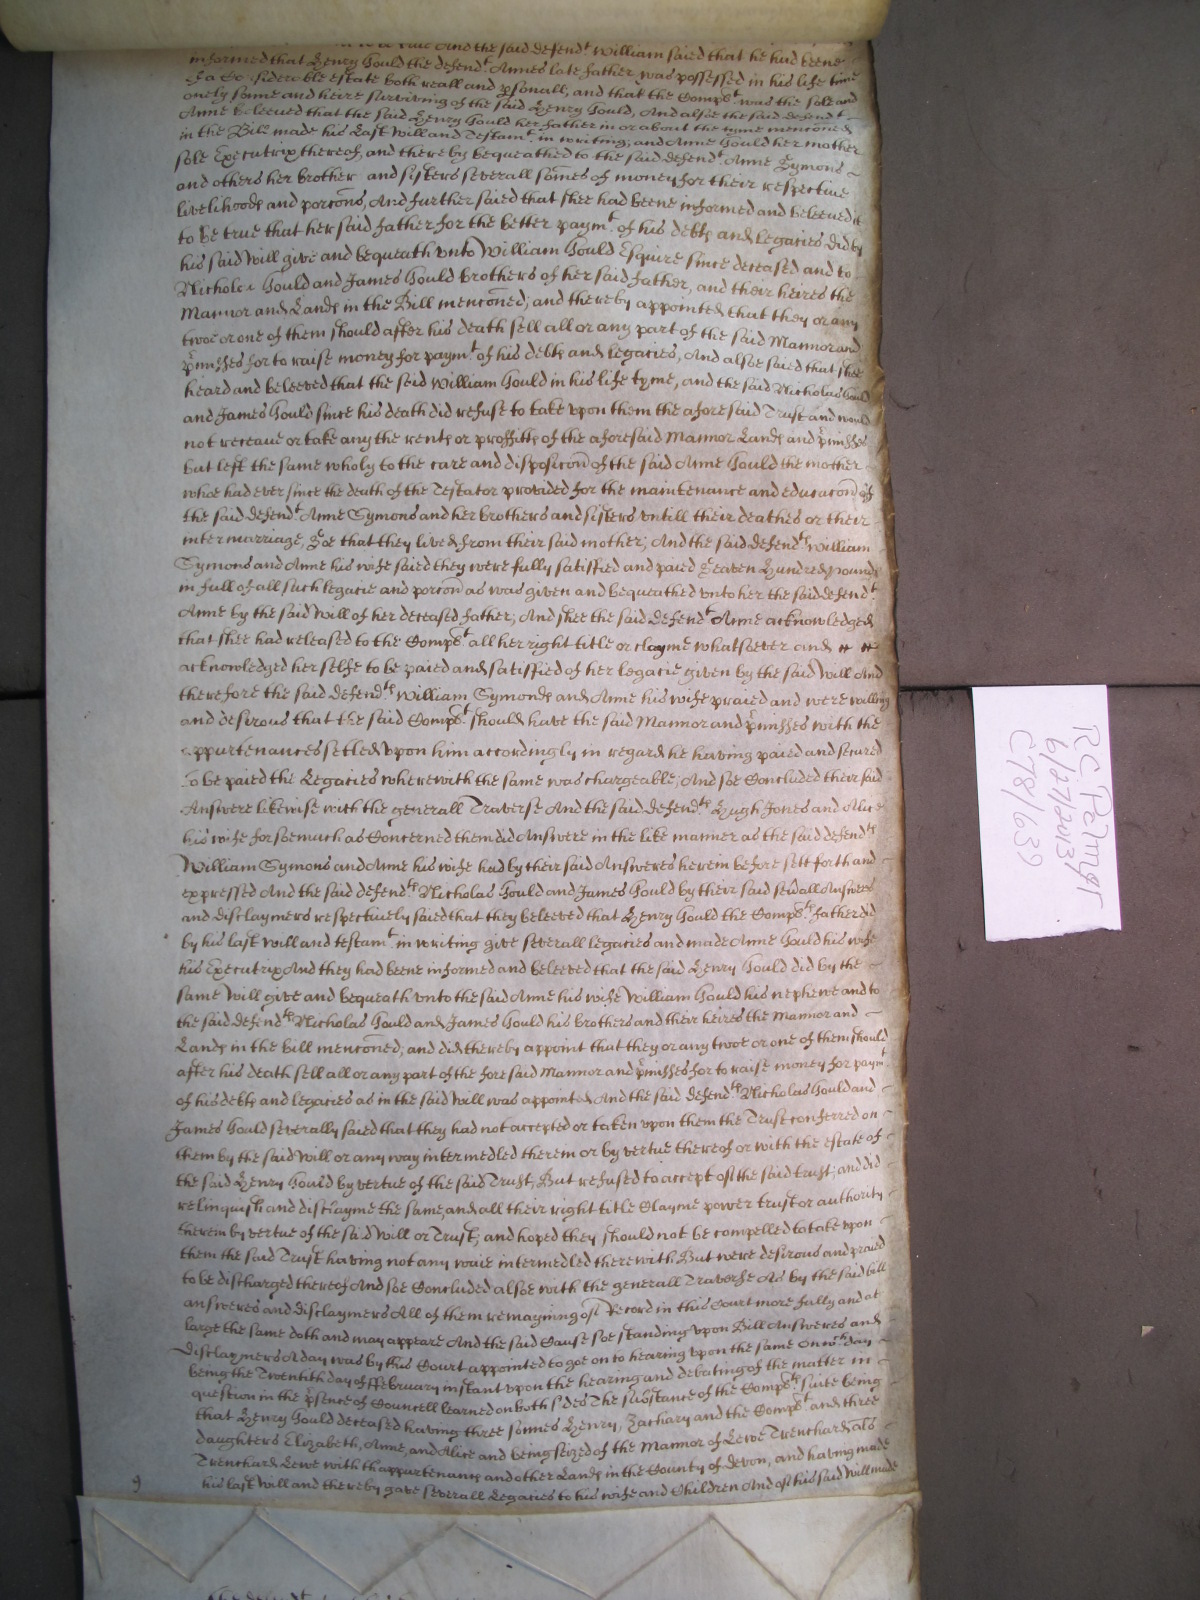 to be true And the said defendt. William saied that he had beene
informed that Henry Gould the defendt. Annes late father was possessed in his life time
of a Considereble estate both reall and psonall, and that the Complt. was the sole and
onely sonne and heire surviving of the said Henry Gould, And alsoe the said defendt.
Anne beleeved that the said Henry Gould her father in or about the tyme menconed
in the Bill made his Last will and Testamt. in writing, and Anne Gould her mother
sole Executrix thereof, and thereby bequeathed to the said defendt. Anne Symons
and others her brother and sisters severall somes of money for their respective
livelihoods and porcons, And further saied that shee had beene informed and beleeved it
to be true that her said father for the better paymt. of his debts and Legacies did by
his said will give and bequeath unto William Gould Esquire since deceased and to
Nicholas Gould and James Gould brothers of her said father, and their heires the
Mannor and Lands in the Bill menconed; and thereby appointed that they or any
twoe or one of them should after his death sell all or any part of the said Mannor and
pmisses for to raise money for paymt. of his debts and legacies, And alsoe saied that shee
heard and beleeved that the said William Gould in his life tyme, and the said Nicholas Gould
and James Gould since his death did refuse to take upon them the aforesaid Trust and would
not receave or take any the rents or proffitts of the aforesaid Mannor Lands and pmisses
but left the same wholy to the care and disposicon of the said Anne Gould the mother
whoe had ever since the death of the Testator provided for the maintenance and educacon of
the said defendt. Anne Symons and her brothers and sisters untill their deathes or their
intermarriage, Soe that they lived from their said mother; And the said defendts. William
Symons and Anne his wife saied they were fully satisfied and paied Seaven Hundred pounds
in full of all such legacie and porcon as was given and bequeathed unto her the said defendt.
Anne by the said will of her deceased father; And shee the said defendt. Anne acknowledged
that shee had released to the Complt. all her right title or clayme whatsoever and
acknowledged her selfe to be paied and satisfied of her legacie given by the said will And
therefore the said defendts. William Symonds and Anne his wife praied and were willing
and desirous that the said Complt. should have the said Mannor and pmisses with the
appurtenances setled upon him accordingly in regard he having paied and secured
to be paied the Legacies wherewith the same was chargeable; And soe Concluded their said
Answere likewise with the generall Traverse And the said defendts. Hugh Jones and Alice
his wife forsoemuch as Concerned them did Answere in the like manner as the said defendts.
William Symons and Anne his wife had by their said Answeres herein before sett forth and
expressed And the said defendts. Nicholas Gould and James Gould by their said seuall Answers
and disclaymers respectively saied that they beleeved that Henry Gould the Complts. father did
by his last will and testamt. in writing give severall legacies and made Anne Gould his wife
his Executrix And they had beene informed and beleeved that the said Henry Gould did by the
same Will give and bequeath unto the said Anne his wife William Gould his nephewe and to
the said defendts. Nicholas Gould and James Gould his brothers and their heires the Mannor and
Lands in the bill menconed; and did thereby appoint that they or any twoe or one of them should
after his death sell all or any part of the foresaid Mannor and pmisses for to raise money for paymt.
of his debts and legacies as in the said Will was appointed And the said defendts. Nicholas Gould and
James Gould severally saied that they had not accepted or taken upon them the Trust conferred on
them by the said will or any way intermedled therein or by vertue thereof or with the estate of
the said Henry Gould by vertue of the said Trust, But refused to accept of the said trust; and did
relinquish and disclayme the same, and all their right title Clayme power trust or authority
therein by vertue of the said Will or Trust; and hoped they should not be compelled to take upon
them the said Trust having not any waie intermedled therewith But were desirous and praied
to be discharged thereof And soe Concluded alsoe with the generall Traverse As by the said bill
answeres and disclaymers All of them remayning of Record in this Court more fully and at
large the same doth and may appeare And the said Cause soe standing upon Bill Answeres and
disclaymers A day was by this Court appointed to goe on to hearing upon the same On wch. day
being the Twentith day of ffebruary instant upon the hearing and debating of the matter in
question in the psence of Councell learned on both sides The substance of the Complts. suite being
that Henry Gould deceased having three sonnes Henry, Zachary and the Complt. and three
daughters Elizabeth, Anne, and Alice and being seized of the Mannor of Lewe Trenchard als
Trenchard Lewe with thappurtenances and other Lands in the County of devon, and having made
his last will and thereby gave severall Legacies to his wife and Children And of his said will made
9
RC Palmer
6/27/2013
C78/639